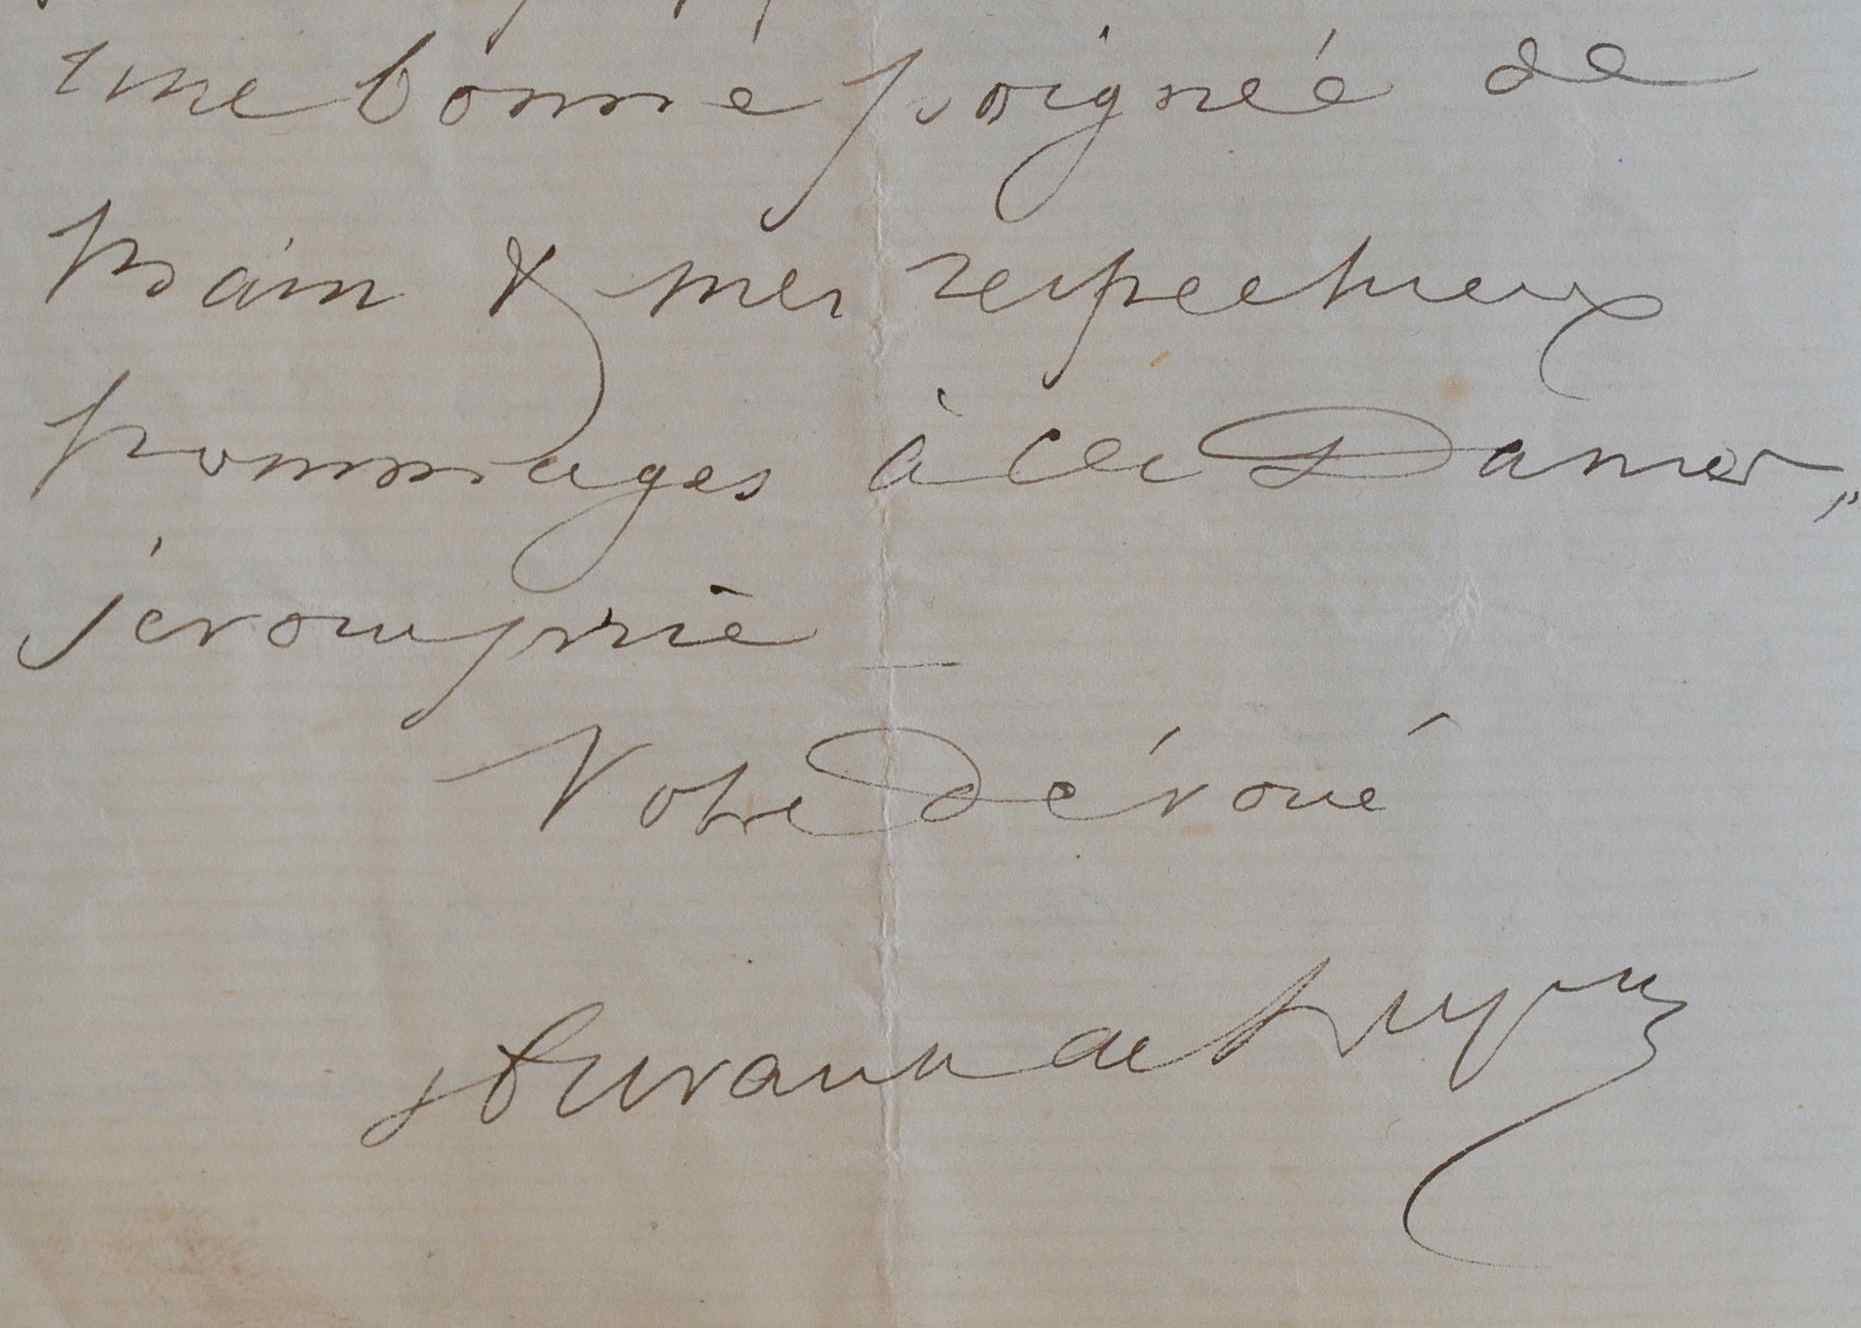 une bonne poignée de
main & mes respectueux
hommages à ces Dames,
je vous prie
Votre Dévoué